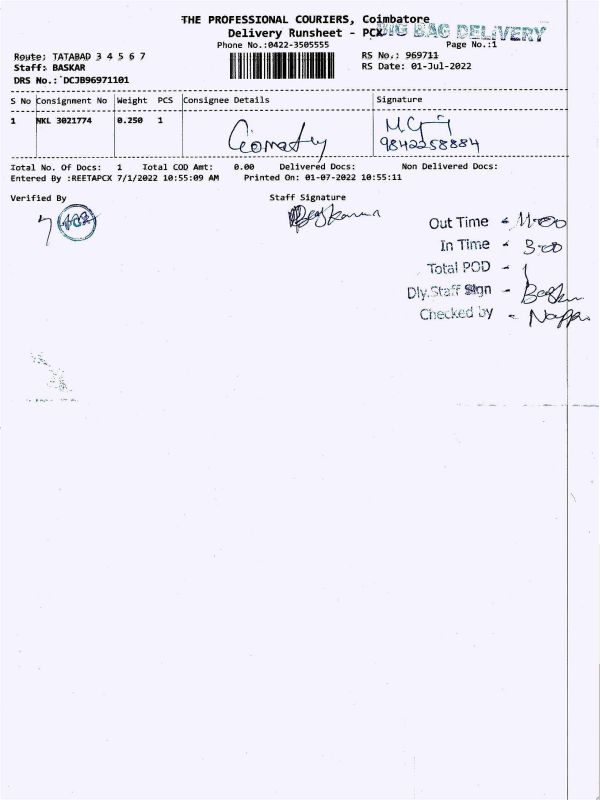 THE PROFESSIONAL COURIERS, Coimbatore
Delivery Runsheet - PCX
BIG BAG DELIVERY
Phone No.:0422-3505555
Page No.:1
Route: TATABAD 3 4 5 6 7
RS No.: 969711
Staff: BASKAR
RS Date: 01-Jul-2022
DRS No.: DCJB96971101
S No Consignment No Weight PCS Consignee Details Signature
1 NKL 3021774 0.250 1
9842258884
Total No. Of Docs: 1 Total COD Amt: 0.00 Delivered Docs: Non Delivered Docs:
Entered By :REETAPCX 7/1/2022 10:55:09 AM Printed On: 01-07-2022 10:55:11
Verified By Staff Signature
Out Time - 11-00
In Time - 3-00
Total POD - 1
Dly.Staff Sign -
Checked by -